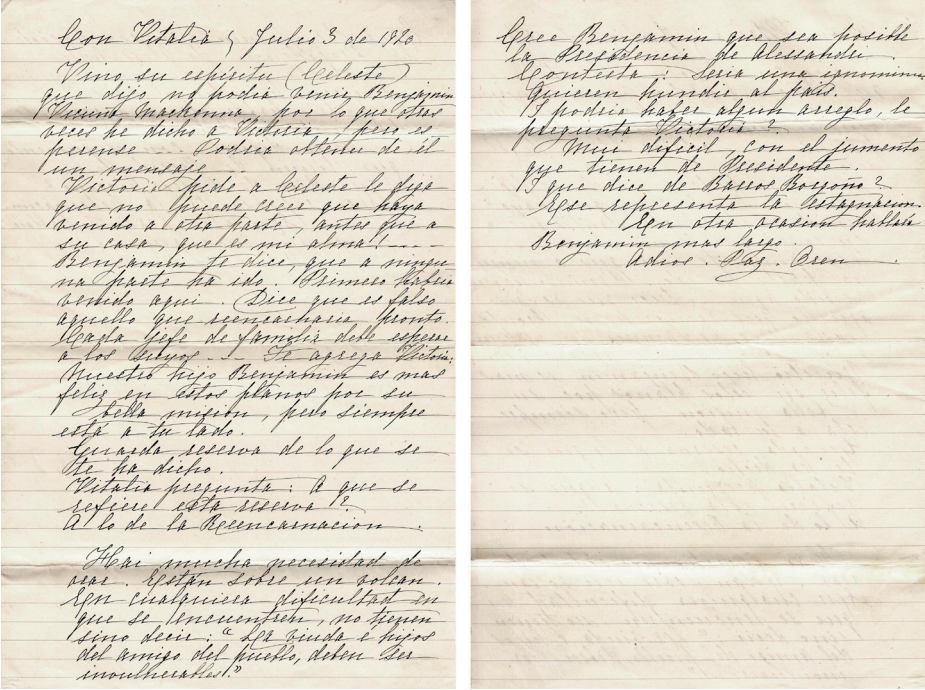 Con Vitalia y Julio 3 de 1920
Vino su espíritu (Celeste)
que dijo no podia venir Benjamin
Vicuña Mackenna, por lo que otras
veces he dicho a Victoria, pero es
perense --- Podria obtener de él
un mensaje ---
Victoria pide a Celeste le diga
que no puede creer que haya
venido a otra parte, antes que a
su casa, que es mi alma! ----
Benjamin te dice, que a ningu
na parte ha ido. Primero habria
venido aqui. Dice que es falso
aquello que reencarnaria pronto.
Cada jefe de familia debe esperar
a los suyos --- Te agrega Victoria:
Nuestro hijo Benjamin es mas
feliz en estos planos por su
bella mision, pero siempre
está a tu lado.
Guarda reserva de lo que se
te ha dicho.
Vitalia pregunta: A que se
refiere esta reserva?
A lo de la Reencarnacion.
Hai mucha necesidad de
orar. Están sobre un volcan.
En cualquiera dificultad en
que se encuentren, no tienen
sino decir: "La viuda e hijos
del amigo del pueblo, deben ser
invulnerables."
Cree Benjamin que sea posible
la Presidencia de Alessandri
Contesta: Seria una ignominia
Quieren hundir al pais.
I podria haber algun arreglo, le
pregunta Victoria?
Mui dificil, con el jumento
que tienen de Presidente.
I que dice de Barros Borgoño?
Ese representa la estagnacion.
En otra ocasion hablará
Benjamin mas largo.
Adios. Paz. Oren